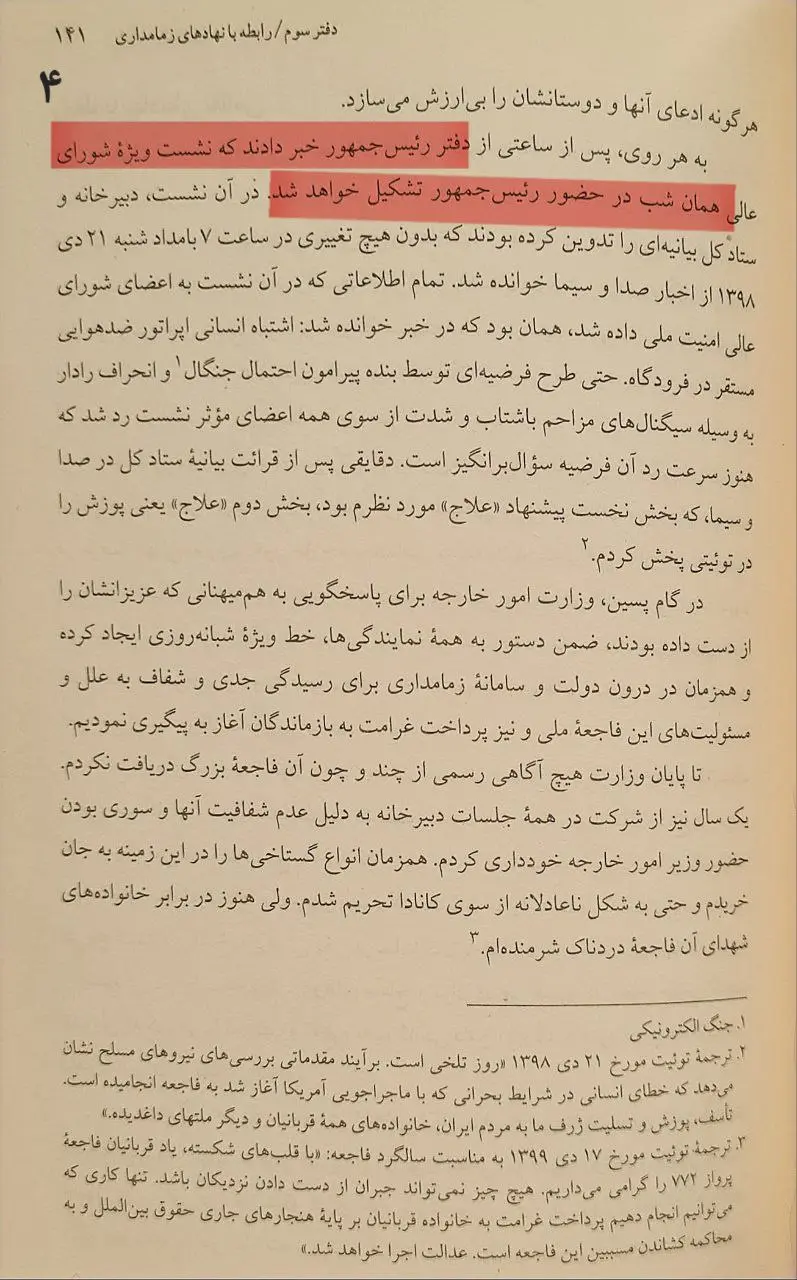 دفتر سوم/ رابطه با نهادهای زمامداری ۱۴۱
۴
هرگونه ادعای آنها و دوستانشان را بی‌ارزش می‌سازد.
به هر روی، پس از ساعتی از دفتر رئیس‌جمهور خبر دادند که نشست ویژهٔ شورای
عالی همان شب در حضور رئیس‌جمهور تشکیل خواهد شد. در آن نشست، دبیرخانه و
ستاد کل بیانیه‌ای را تدوین کرده بودند که بدون هیچ تغییری در ساعت ۷ بامداد شنبه ۲۱ دی
۱۳۹۸ از اخبار صدا و سیما خوانده شد. تمام اطلاعاتی که در آن نشست به اعضای شورای
عالی امنیت ملی داده شد، همان بود که در خبر خوانده شد: اشتباه انسانی اپراتور ضدهوایی
مستقر در فرودگاه. حتی طرح فرضیه‌ای توسط بنده پیرامون احتمال جنگال۱ و انحراف رادار
به وسیله سیگنال‌های مزاحم باشتاب و شدت از سوی همه اعضای مؤثر نشست رد شد که
هنوز سرعت رد آن فرضیه سؤال‌برانگیز است. دقایقی پس از قرائت بیانیهٔ ستاد کل در صدا
و سیما، که بخش نخست پیشنهاد «علاج» مورد نظرم بود، بخش دوم «علاج» یعنی پوزش را
در توئیتی پخش کردم.۲
در گام پسین، وزارت امور خارجه برای پاسخگویی به هم‌میهنانی که عزیزانشان را
از دست داده بودند، ضمن دستور به همهٔ نمایندگی‌ها، خط ویژهٔ شبانه‌روزی ایجاد کرده
و همزمان در درون دولت و سامانهٔ زمامداری برای رسیدگی جدی و شفاف به علل و
مسئولیت‌های این فاجعهٔ ملی و نیز پرداخت غرامت به بازماندگان آغاز به پیگیری نمودیم.
تا پایان وزارت هیچ آگاهی رسمی از چند و چون آن فاجعهٔ بزرگ دریافت نکردم.
یک سال نیز از شرکت در همهٔ جلسات دبیرخانه به دلیل عدم شفافیت آنها و سوری بودن
حضور وزیر امور خارجه خودداری کردم. همزمان انواع گستاخی‌ها را در این زمینه به جان
خریدم و حتی به شکل ناعادلانه از سوی کانادا تحریم شدم. ولی هنوز در برابر خانواده‌های
شهدای آن فاجعهٔ دردناک شرمنده‌ام.۳
۱. جنگ الکترونیکی
۲. ترجمهٔ توئیت مورخ ۲۱ دی ۱۳۹۸ «روز تلخی است. برآیند مقدماتی بررسی‌های نیروهای مسلح نشان
می‌دهد که خطای انسانی در شرایط بحرانی که با ماجراجویی آمریکا آغاز شد به فاجعه انجامیده است.
تأسف، پوزش و تسلیت ژرف ما به مردم ایران، خانواده‌های همهٔ قربانیان و دیگر ملتهای داغدیده.»
۳. ترجمهٔ توئیت مورخ ۱۷ دی ۱۳۹۹ به مناسبت سالگرد فاجعه: «با قلب‌های شکسته، یاد قربانیان فاجعهٔ
پرواز ۷۷۲ را گرامی می‌داریم. هیچ چیز نمی‌تواند جبران از دست دادن نزدیکان باشد. تنها کاری که
می‌توانیم انجام دهیم پرداخت غرامت به خانواده قربانیان بر پایهٔ هنجارهای جاری حقوق بین‌الملل و به
محاکمه کشاندن مسببین این فاجعه است. عدالت اجرا خواهد شد.»